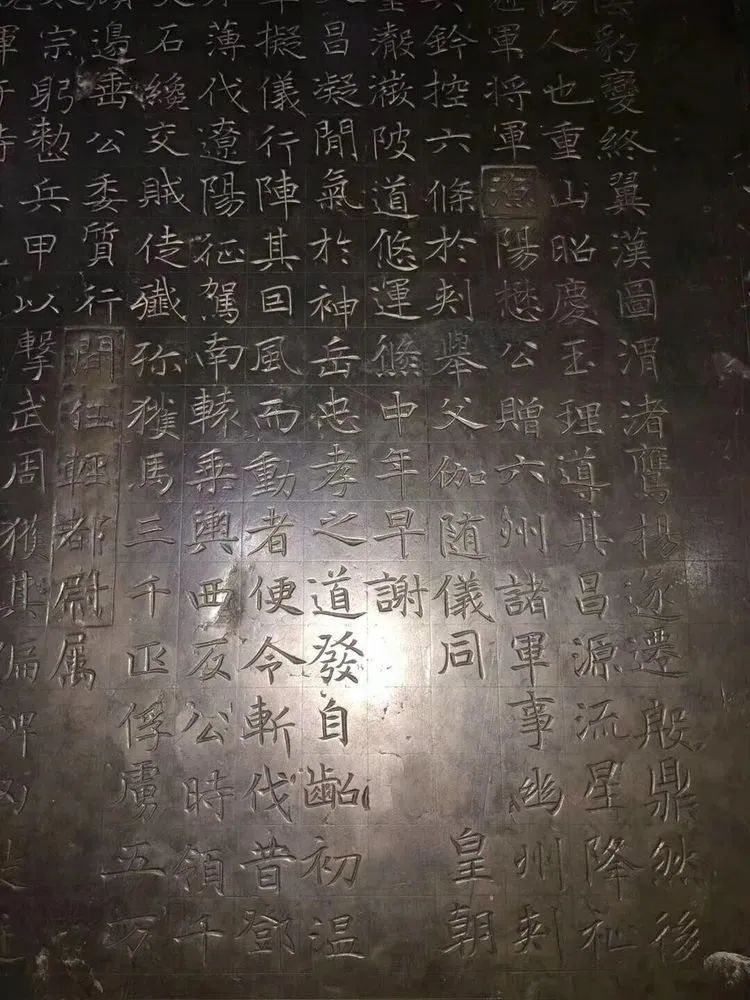 豹變終翼漢圖渭渚鷹揚遂遷殷鼎然後
人也重山昭慶玉理導其昌源流星降祉
軍將軍陽懋公贈六州諸軍事幽州刺
鈐控六條於刺舉父伽随儀同皇朝
陂道悠運倏中年早謝
昌凝閒氣於神岳忠孝之道發自齠初温
擬儀行陣其回風而動者便令斬伐昔鄧
薄伐遼陽征駕南轅乗輿西反公時領千
石纔交賊徒殱殄獲馬三千疋俘虜五万
邊垂公委質行間任輕都尉属
宗躬勒兵甲以擊武周獲其偏裨